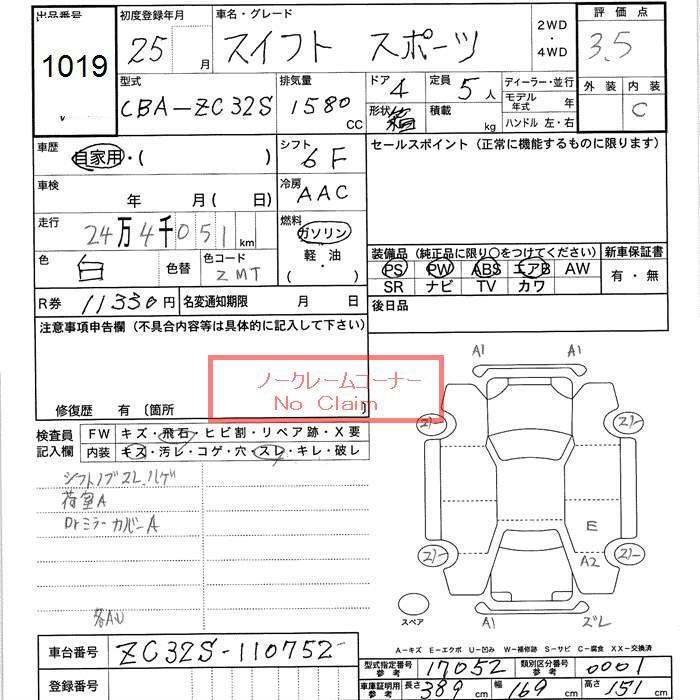 出品番号 初度登録年月 車名・グレード 2WD ・ 4WD 評価点
1019 25 月 スイフト スポーツ 3.5
型式 排気量 ドア 4 定員 5人 ディーラー・並行 外装 内装
CBA-ZC32S 1580 CC 形状 箱 積載 kg モデル年式 年 C
ハンドル 左・右
車歴 自家用・( ) シフト 6F セールスポイント(正常に機能するものに限ります)
車検 年 月( 日) 冷房 AAC
走行 24万4千051 km 燃料 ガソリン
軽油
( )
色 白 色替 色コード ZMT 装備品(純正品に限り〇をつけてください) 新車保証書
PS PW ABS エアB AW 有・無
SR ナビ TV カワ
R券 11330円 名変通知期限 月 日 後日品
注意事項申告欄(不具合内容等は具体的に記入して下さい)
ノークレームコーナー
No Claim
修復歴 有(箇所 )
検査員記入欄 FW キズ・飛石・ヒビ割・リペア跡・X要
内装 キズ・汚レ・コゲ・穴・スレ・キレ・破レ
シフトノブスレ、ハゲ
荷室A
Drミラーカバー A
各AU
A1 A1
E
A2
A1 ズレ
スペア
A-キズ E-エクボ U-凹み W-補修跡 S-サビ C-腐食 XX-交換済
車台番号 ZC32S-110752
登録番号
型式指定番号参考 17052 類別区分番号参考 0001
車庫証明用参考 長さ 389 cm 幅 169 cm 高さ 151 cm